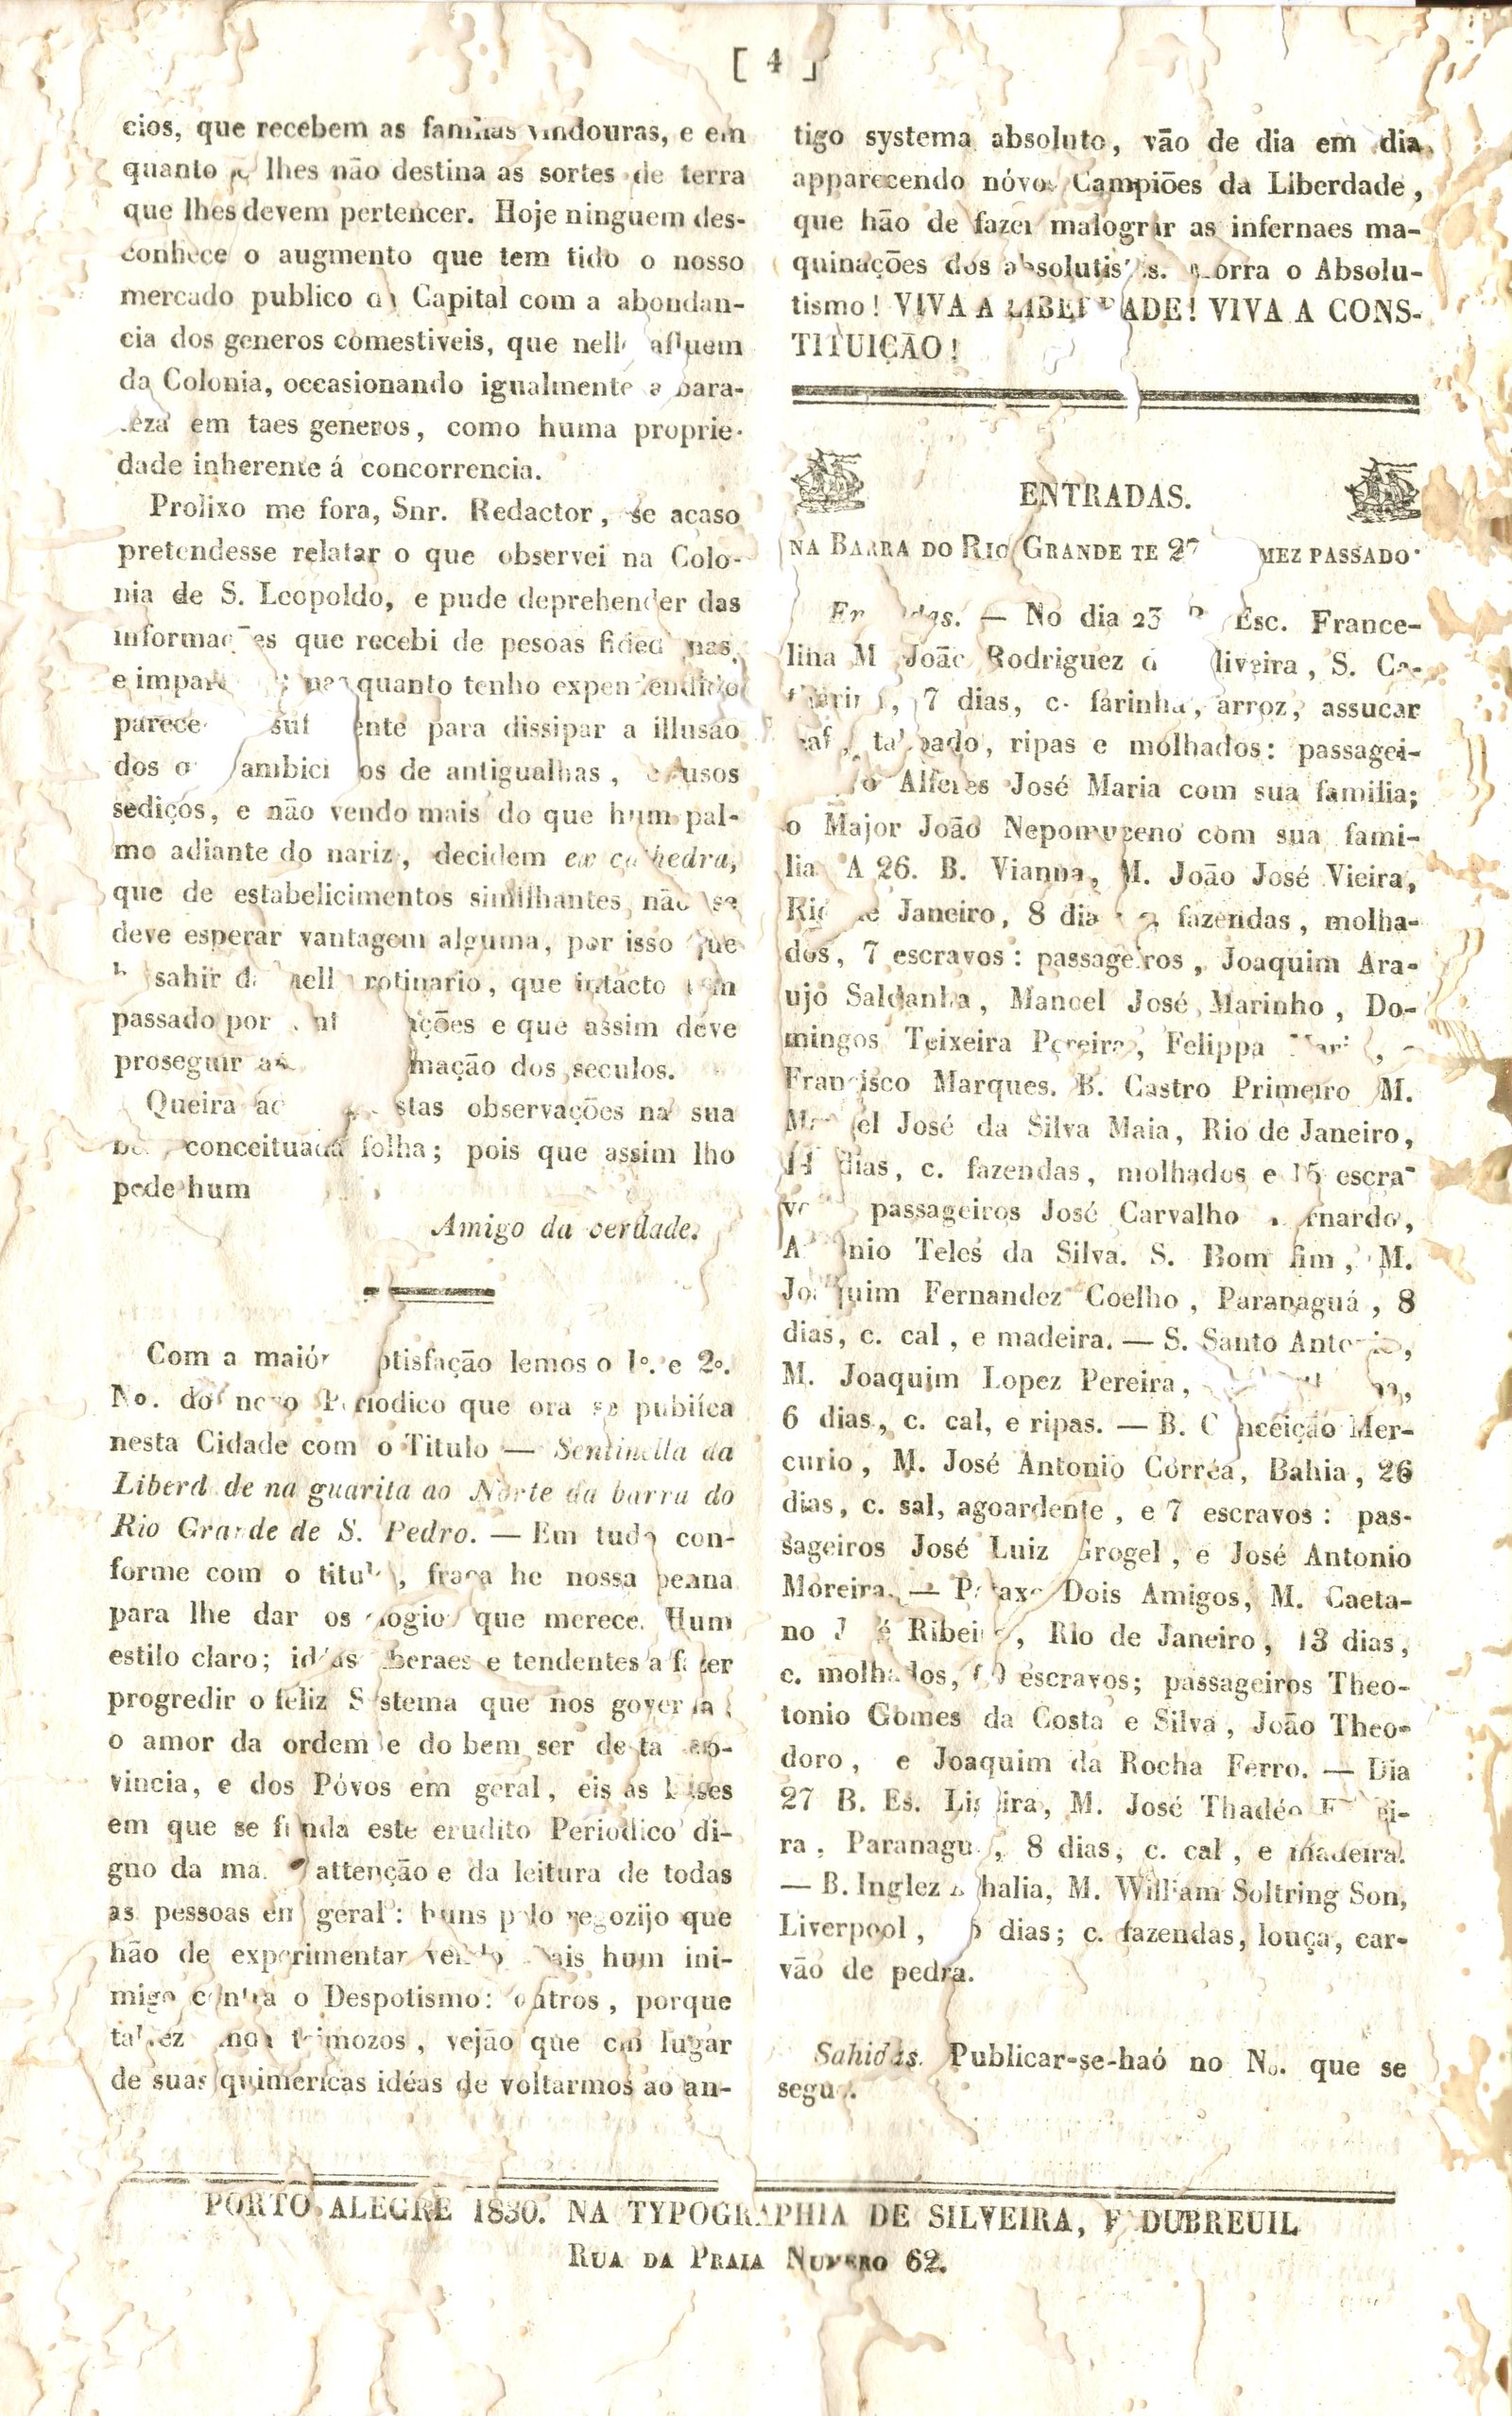 [ 4 ]
cios, que recebem as familias vindouras, e em
quanto lhes não destina as sortes de terra
que lhes devem pertencer. Hoje ninguem des-
conhece o augmento que tem tido o nosso
mercado publico Capital com a abondan-
cia dos generos comestiveis, que nelle afluem
da Colonia, occasionando igualmente a bara-
teza em taes generos, como huma proprie-
dade inherente á concorrencia.
Prolixo me fora, Snr. Redactor, se acaso
pretendesse relatar o que observei na Colo-
nia de S. Leopoldo, e pude deprehender das
informações que recebi de pesoas
quanto tenho
parece para dissipar a illusão
dos de antigualhas, usos
sediços, e não vendo mais do que hum pal-
mo adiante do nariz, decidem ex cathedra,
que de estabelicimentos similhantes não se
deve esperar vantagem alguma, por isso que
sahir rotinario, que intacto tem
passado por e que assim deve
proseguir dos seculos.
Queira observações na sua
conceituada folha; pois que assim lho
pede hum
Amigo da verdade.
Com a maiór satisfação lemos o 1º. e 2º.
No. do novo Periodico que ora se publica
nesta Cidade com o Titulo — Sentinella da
Liberdade na guarita ao Norte da barra do
Rio Grande de S. Pedro. — Em tudo con-
forme com o titulo, fraca he nossa penna
para lhe dar os elogios que merece. Hum
estilo claro; idéas liberaes e tendentes a fazer
progredir o feliz Systema que nos governa;
o amor da ordem e do bem ser desta Pro-
vincia, e dos Póvos em geral, eis as bases
em que se funda este erudito Periodico di-
gno da attenção e da leitura de todas
as pessoas em geral: huns pelo regozijo que
hão de experimentar vendo mais hum ini-
migo contra o Despotismo: outros, porque
talvez teimozos, vejão que em lugar
de suas quimericas idéas de voltarmos ao an-
tigo systema absoluto, vão de dia em dia
apparecendo nóvos Campiões da Liberdade,
que hão de fazer malograr as infernaes ma-
quinações dos absolutistas. Morra o Absolu-
tismo! VIVA A LIBERDADE! VIVA A CONS-
TITUIÇÃO!
ENTRADAS.
NA BARRA DO RIO GRANDE TE 27 MEZ PASSADO
Entradas. — No dia 23 Esc. France-
lina M. João Rodriguez Oliveira, S. Ca-
tharina, 17 dias, c. farinha, arroz, assucar
taboado, ripas e molhados: passagei-
o Alferes José Maria com sua familia;
o Major João Nepomuceno com sua fami-
lia A 26. B. Vianna, M. João José Vieira,
Rio de Janeiro, 8 dias fazendas, molha-
dos, 7 escravos: passageiros, Joaquim Ara-
ujo Saldanha, Manoel José Marinho, Do-
mingos Teixeira Pereira, Felippa
Francisco Marques. B. Castro Primeiro M.
Manoel José da Silva Maia, Rio de Janeiro,
14 dias, c. fazendas, molhados e 15 escra-
vos passageiros José Carvalho Bernardo,
Antonio Teles da Silva. S. Bom fim, M.
Joaquim Fernandez Coelho, Paranaguá, 8
dias, c. cal, e madeira. — S. Santo Antonio,
M. Joaquim Lopez Pereira,
6 dias, c. cal, e ripas. — B. Conceição Mer-
curio, M. José Antonio Corrêa, Bahia, 26
dias, c. sal, agoardente, e 7 escravos: pas-
sageiros José Luiz Grogel, e José Antonio
Moreira. — Pataxo Dois Amigos, M. Caeta-
no José Ribeiro, Rio de Janeiro, 13 dias,
c. molhados, escravos; passageiros Theo-
tonio Gomes da Costa e Silva, João Theo-
doro, e Joaquim da Rocha Ferro. — Dia
27 B. Es. M. José Thadéo
ra, Paranaguá, 8 dias, c. cal, e madeira.
— B. Inglez Thalia, M. William Soltring Son,
Liverpool, dias; c. fazendas, louça, car-
vão de pedra.
Sahidas. Publicar-se-haó no No. que se
segue.
PORTO ALEGRE 1830. NA TYPOGRAPHIA DE SILVEIRA, E DUBREUIL
RUA DA PRAIA NUMERO 62.